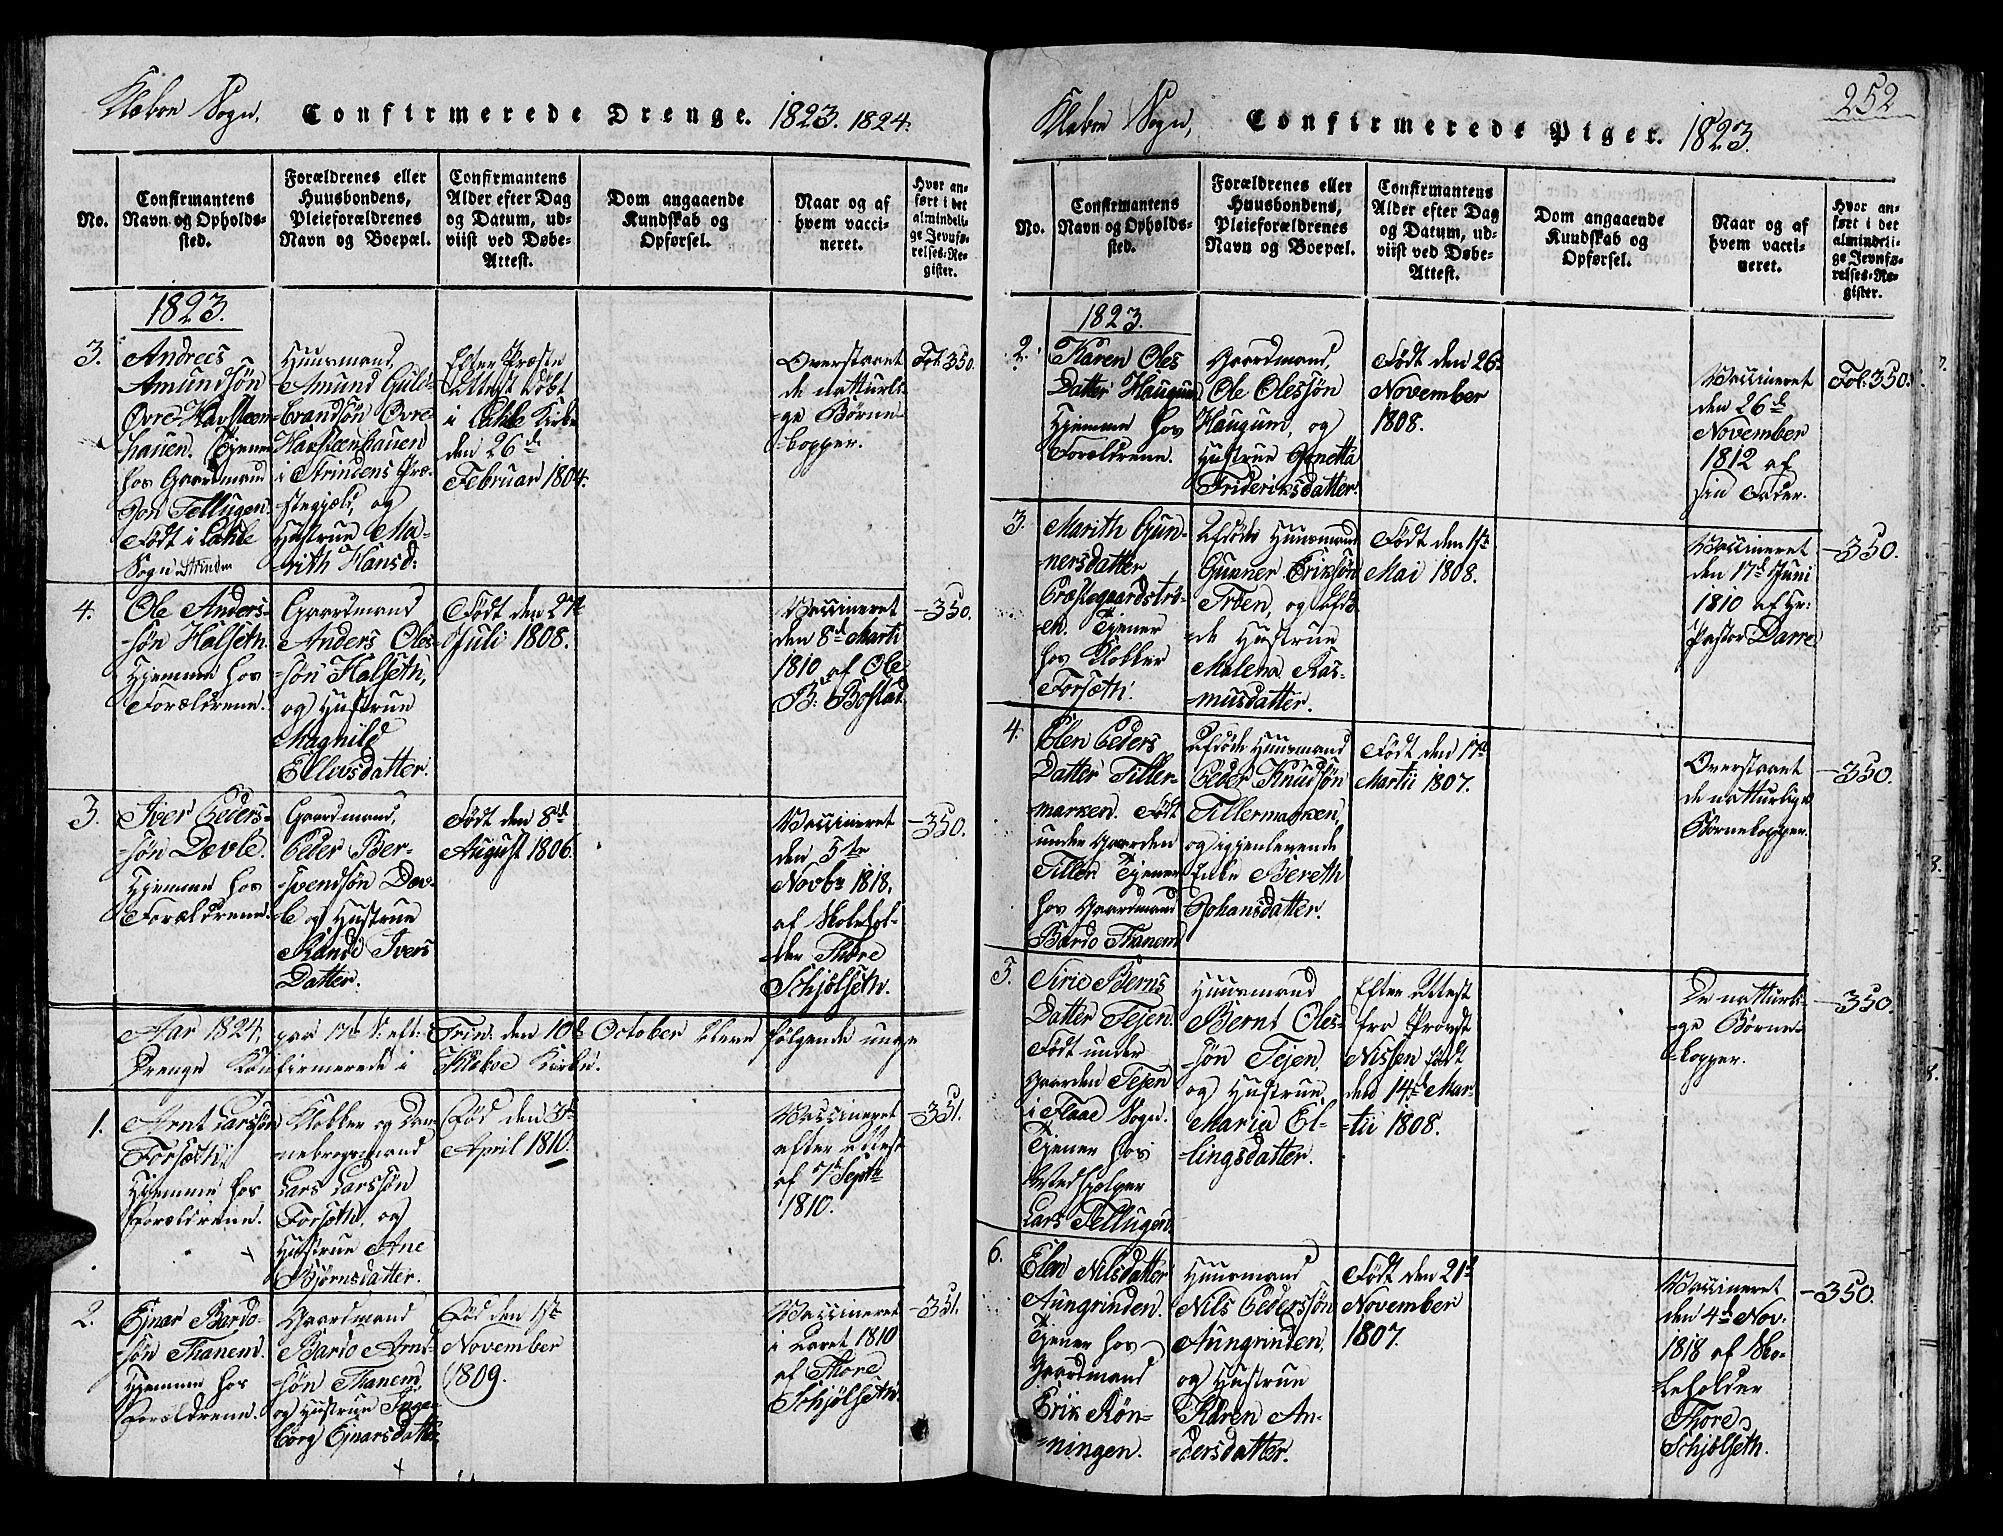 Klæboe Sogn. Confirmerede Drenge. 1823. 1824.
No.
Confirmantens
Navn og Opholds-
sted.
Forældrenes eller
Huusbondens,
Pleieforældrenes
Navn og Boepæl.
Confirmantens
Alder efter Dag
og Datum, ud-
viist ved Døbe-
Attest.
Dom angaaende
Kundskab og
Opførsel.
Naar og af
hvem vacci-
neret.
Hvor an-
ført i det
almindeli-
ge Jevnfø-
relses-Re-
gister.
1823.
3.
Andrees
Amundsøn
Øvre-Havsteen-
hauen. Tjener
hos Gaardmand
Jon Tellugen.
Født i Lahle
Sogn Strinden
Huusmand,
Amund Guld-
brandsøn Øvre
Havsteenhauen
i Strindens Præ-
stegjæld, og
Hustrue Ma-
rith Hansd:
Efter Præste
Attest døbt
i Lahle Kirke
den 26de
Februar 1804.
Overstaaet
de naturli-
ge Børne-
kopper.
Fol: 350.
4.
Ole Anders-
søn Halseth.
Hjemme hos
Forældrene.
Gaardmand
Anders Oles-
søn Halseth,
og Hustrue
Magnild
Ellevsdatter.
Født den 27de
Juli 1808.
Vaccineret
den 8de Marti
1810 af Ole
B: Bostad
-350.
5.
Iver Peders-
søn Devle.
Hjemme hos
Forældrene.
Gaardmand,
Peder Ber-
svendsøn Dev-
le og Hustrue
Randi Ivers
Datter.
Født den 8de
August 1806.
Vaccineret
den 5te
Novbr 1818,
af Skolehol-
der Thore
Schjølseth.
-350.
Aar 1824, paa 17de S. eft: Trin: den 10de October bleve følgende unge
Drenge Konfirmerede i Klæboe Kirke.
1.
Arnt Larssøn
Forsæth,
Hjemme hos
Forældrene.
Klokker og Dan-
nebrogsmand
Lars Larssøn
Forsæth, og
Hustrue Ane
Bjørnsdatter.
Fød den 3de
April 1810.
Vaccineret
efter Attest
af 7de Septbr
1810.
-351.
2.
Ejnar Bardo-
søn Thanem.
Hjemme hos
Forældrene.
Gaardmand
Bardo Arnt-
søn Thanem
og Hustrue Inge-
borg Ejnarsdatter
Fød den 1ste
November
1809.
Vaccineret
i Aaret 1810
af Thore
Schjølseth.
-351.
252
Klæboe Sogn, Confirmerede Piger. 1823.
No.
Confirmantens
Navn og Opholds-
sted.
Forældrenes eller
Huusbondens,
Pleieforældrenes
Navn og Boepæl.
Confirmantens
Alder efter Dag
og Datum, ud-
viist ved Døbe-
Attest.
Dom angaaende
Kundskab og
Opførsel.
Naar og af
hvem vacci-
neret.
Hvor an-
ført i det
almindeli-
ge Jevnfø-
relses-Re-
gister.
1823.
2.
Karen Oles
Datter Haugum
Hjemme hos
Forældrene.
Gaardmand,
Ole Olessøn
Haugum, og
Hustrue Gjenetta
Frideriksdatter.
Født den 26de
November
1808.
Vaccineret
den 26de
November
1812 af
sin Fader.
Fol: 350.
3.
Marith Gun-
nersdatter
Præstegaardstrø-
en. Tjener
hos Klokker
Forsæth.
Afdøde Huusmand
Gunner Eriksøn
Trøen, og afdø-
de Hustrue
Malena Ras-
musdatter.
Født den 1ste
Mai 1808.
Vaccineret
den 17de Juni
1810 af Hr
Pastor Darre
-350.
4.
Elen Peders
Datter Tiller-
marken. Født
under Gaarden
Tiller Tjener
hos Gaardmand
Bardo Thanem
Afdøde Huusmand
Peder Knudsøn
Tillermarken,
og igjenlevende
Enke Bereth
Johansdatter.
Født den 17de
Martii 1807.
Overstaaet
de naturlige
Børnekopper.
-350.
5.
Siric Bernts
Datter Tejen.
Født under
Gaarden Tejen
i Flaae Sogn.
Tjener hos
Medhjelper
Lars Tellugen.
Huusmand
Bernt Oles-
søn Tejen,
og Hustrue,
Maria El-
lingsdatter.
Efter Attest
fra Provst
Nissen født
den 14de Mar-
tii 1808.
De naturli-
ge Børne-
kopper.
-350.
6.
Elen Nilsdatter
Aungrinden.
Tjener hos
Gaardmand
Erik Røn-
ningen.
Huusmand
Nils Pederssøn
Aungrinden,
og Hustrue
Karen An-
dersdatter.
Født den 21de
November
1807.
Vaccineret
den 4de Nov:
1818 af Sko-
leholder
Thore
Schjølseth.
-350.